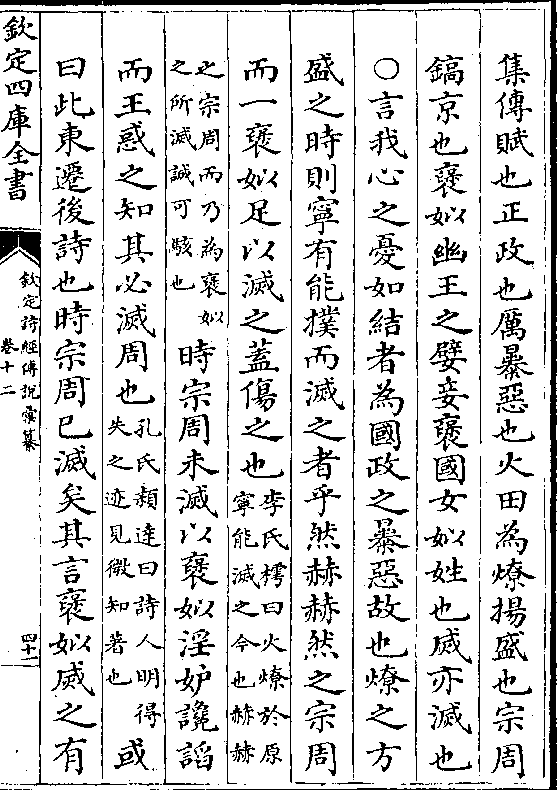 集傳賦也正政也厲暴惡也火田為燎揚盛也宗周
鎬京也褒姒幽王之嬖妾褒國女姒姓也烕亦滅也
○言我心之憂如結者為國政之暴惡故也燎之方
盛之時則寧有能撲而滅之者乎然赫赫然之宗周
而一褒姒足以滅之蓋傷之也李氏樗曰火燎於原寧能滅之今也赫赫
之宗周而乃為褒姒之所滅誠可駭也時宗周未滅以褒姒淫妒讒諂
而王惑之知其必滅周也孔氏穎達曰詩人明得失之迹見微知著也或
曰此東遷後詩也時宗周已滅矣其言褒姒烕之有
欽定四庫全書
欽定詩經傳說彙纂
卷十二
四十二